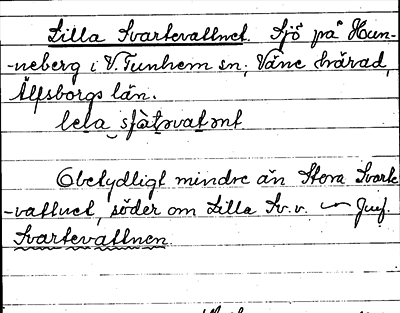 Lilla Svartevattnet. Sjö på Hun-
-neberg i V. Tunhem sn; Väne härad,
Älfsborgs län.
Obetydligt mindre än Stora Svarte
-vattnet, söder om Lilla Sv.v. — Jmf.
Svartevattnen.